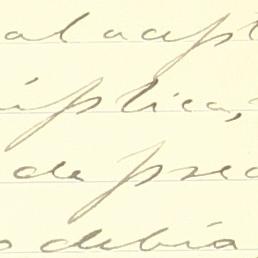 al acept
úplica,
de pre
debía